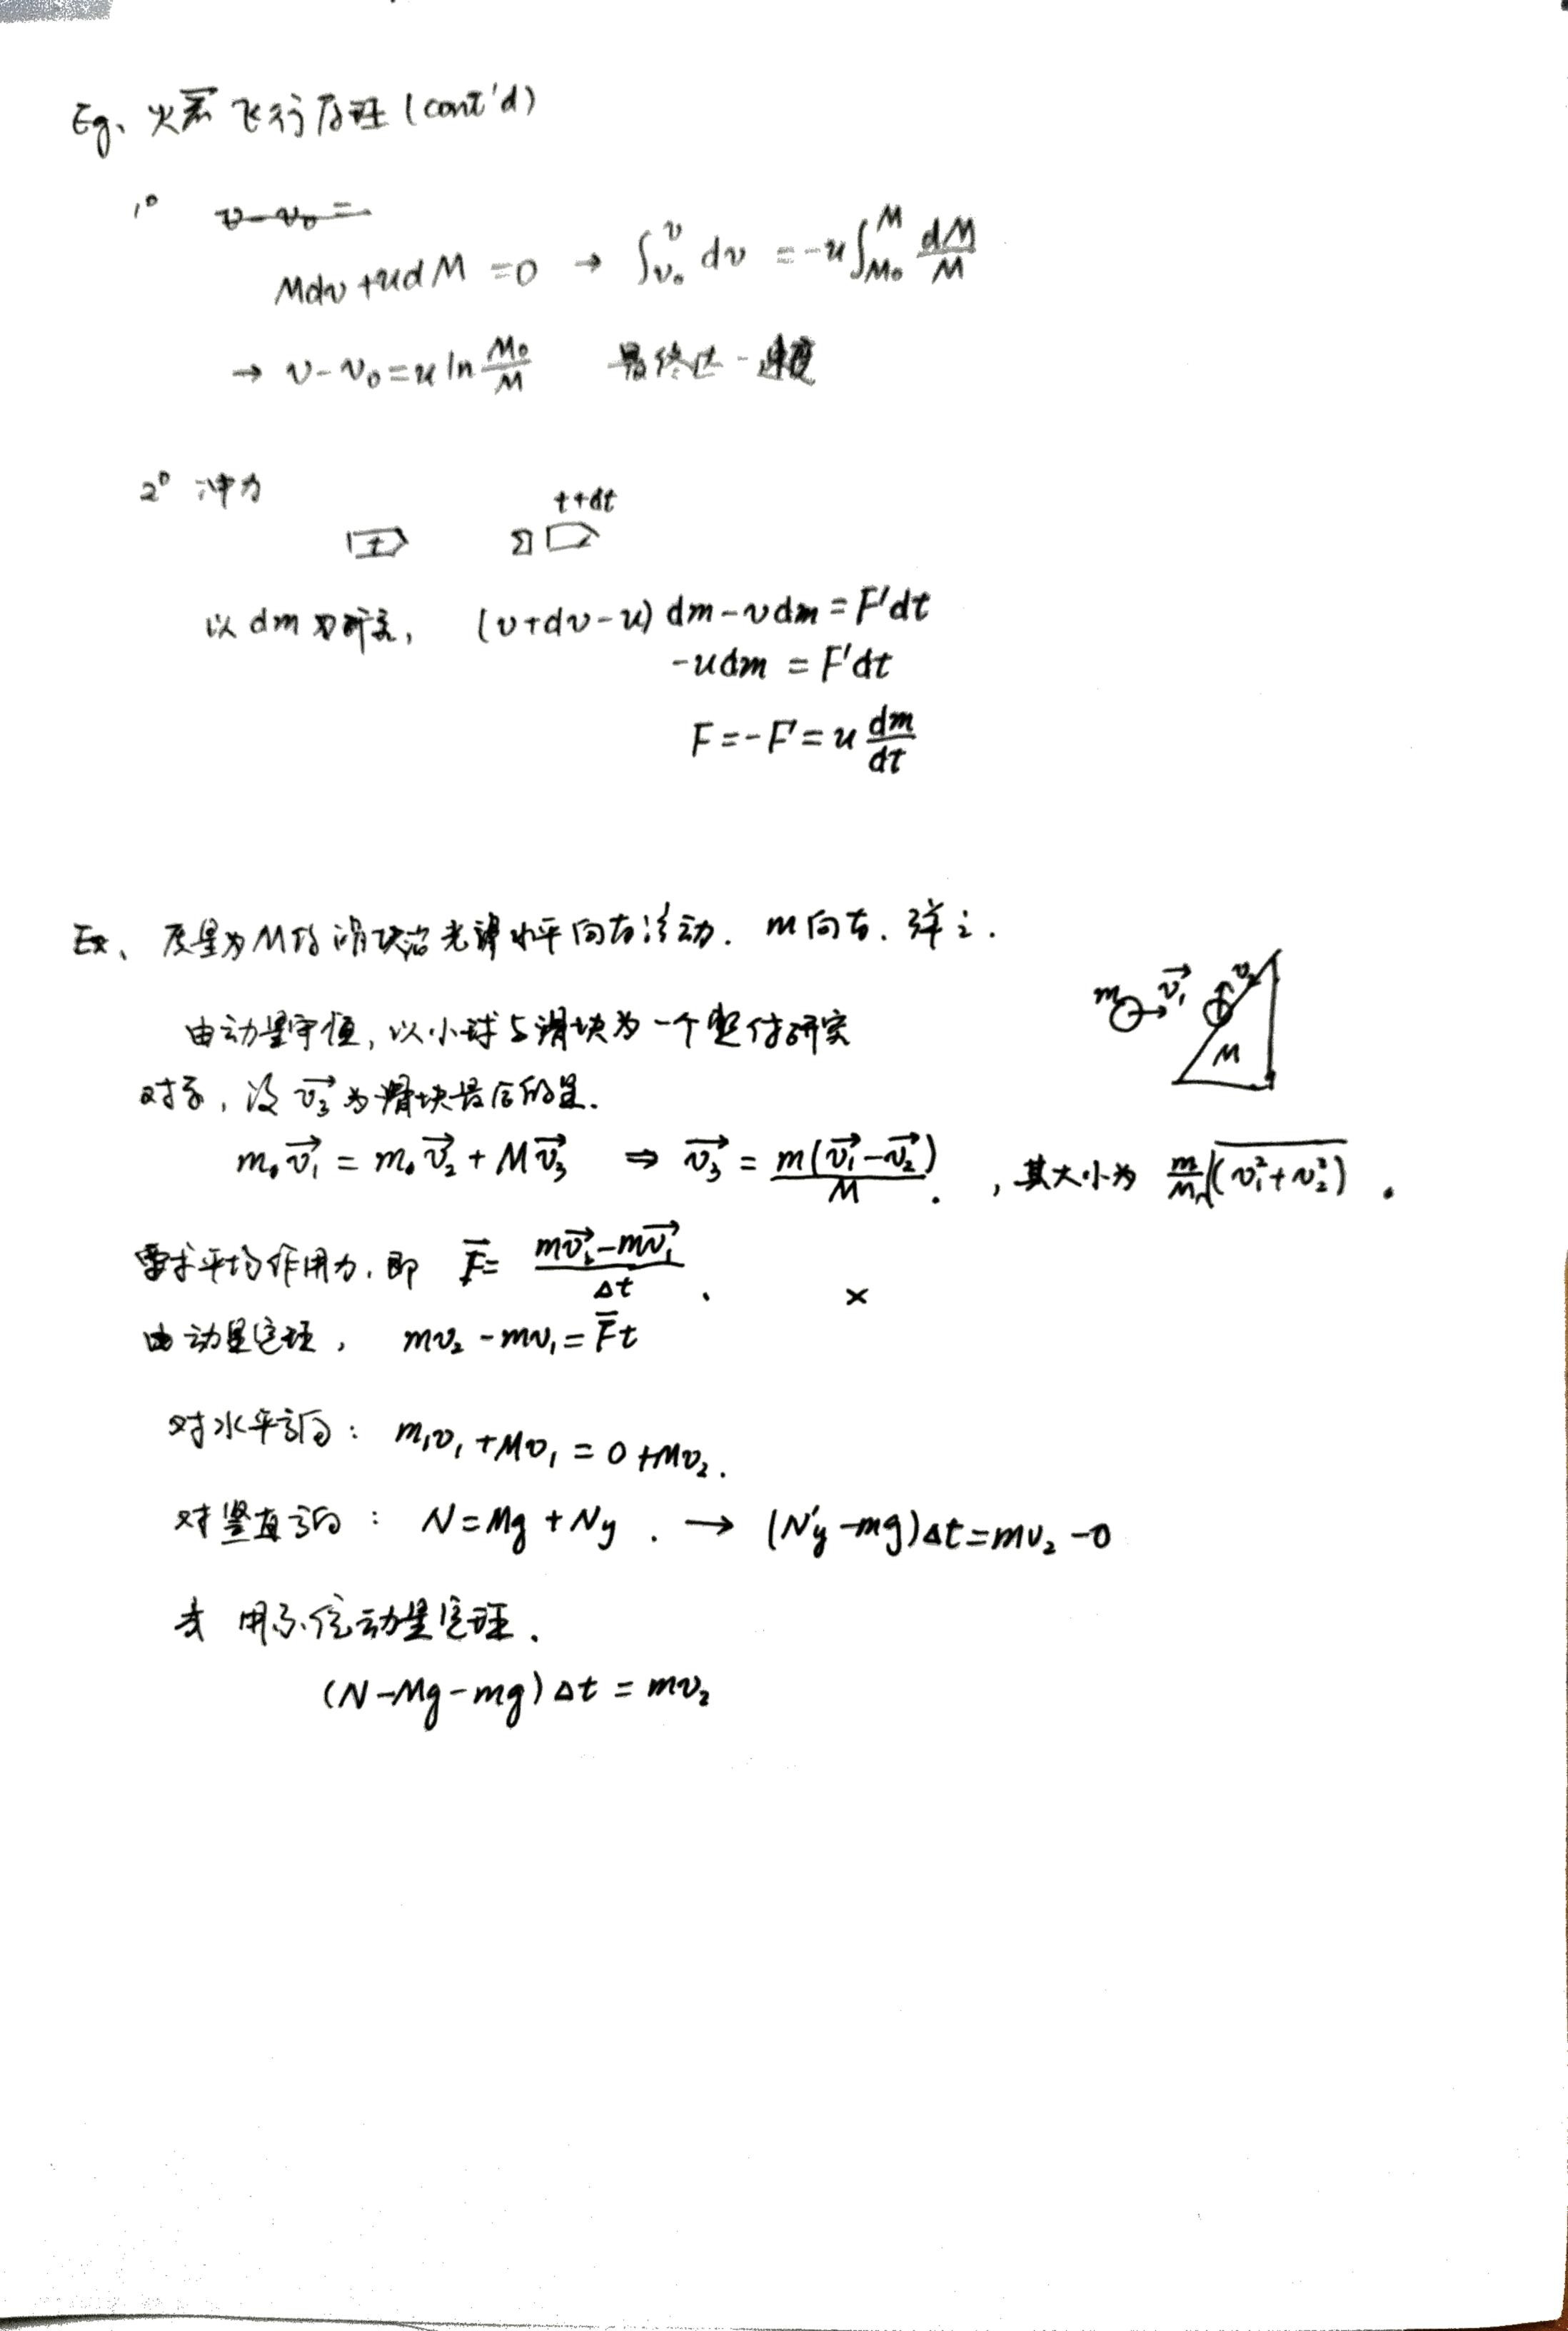 Eg、火箭飞行原理 (cont'd)
1° v-v₀=
Mdv+udM=0 → ∫_{v₀}^{v} dv = -u∫_{M₀}^{M} dM/M
→ v-v₀=u ln M₀/M 最终达一速度
2° 冲力
t t+dt
以dm为研究, (v+dv-u)dm-vdm=F'dt
-udm=F'dt
F=-F'=u dm/dt
Ex、质量为M的滑块沿光滑水平向右滑动. m向右. 弹之.
m v₁→ v₂ M
由动量守恒, 以小球与滑块为一个整体研究
对象, 设v₃→为滑块最后的量.
m·v₁→=m·v₂→+Mv₃→ ⇒ v₃→=m(v₁→-v₂→)/M. , 其大小为 m/M √(v₁²+v₂²).
要求平均作用力, 即 F̄=(mv₂→-mv₁→)/Δt. ×
由动量定理, mv₂-mv₁=F̄t
对水平方向: m₁v₁+Mv₁=0+Mv₂.
对竖直方向: N=Mg+Ny. → (N'y-mg)Δt=mv₂-0
用系统动量定理.
(N-Mg-mg)Δt=mv₂